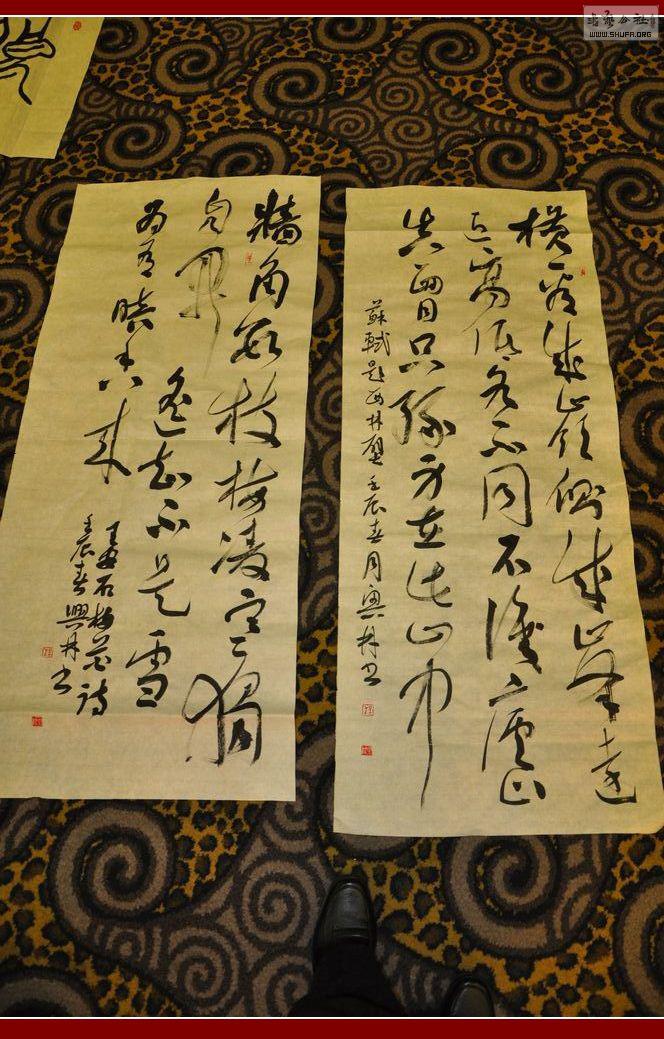 书艺公社
WWW.SHUFA.ORG
横看成嶺側成峰遠
近高低各不同不識廬山
真面目只緣身在此山中
蘇軾題西林壁壬辰春月興林书
牆角數枝梅凌寒獨
自開
遙知不是雪
为有暗香来
王安石梅花詩
壬辰春興林书